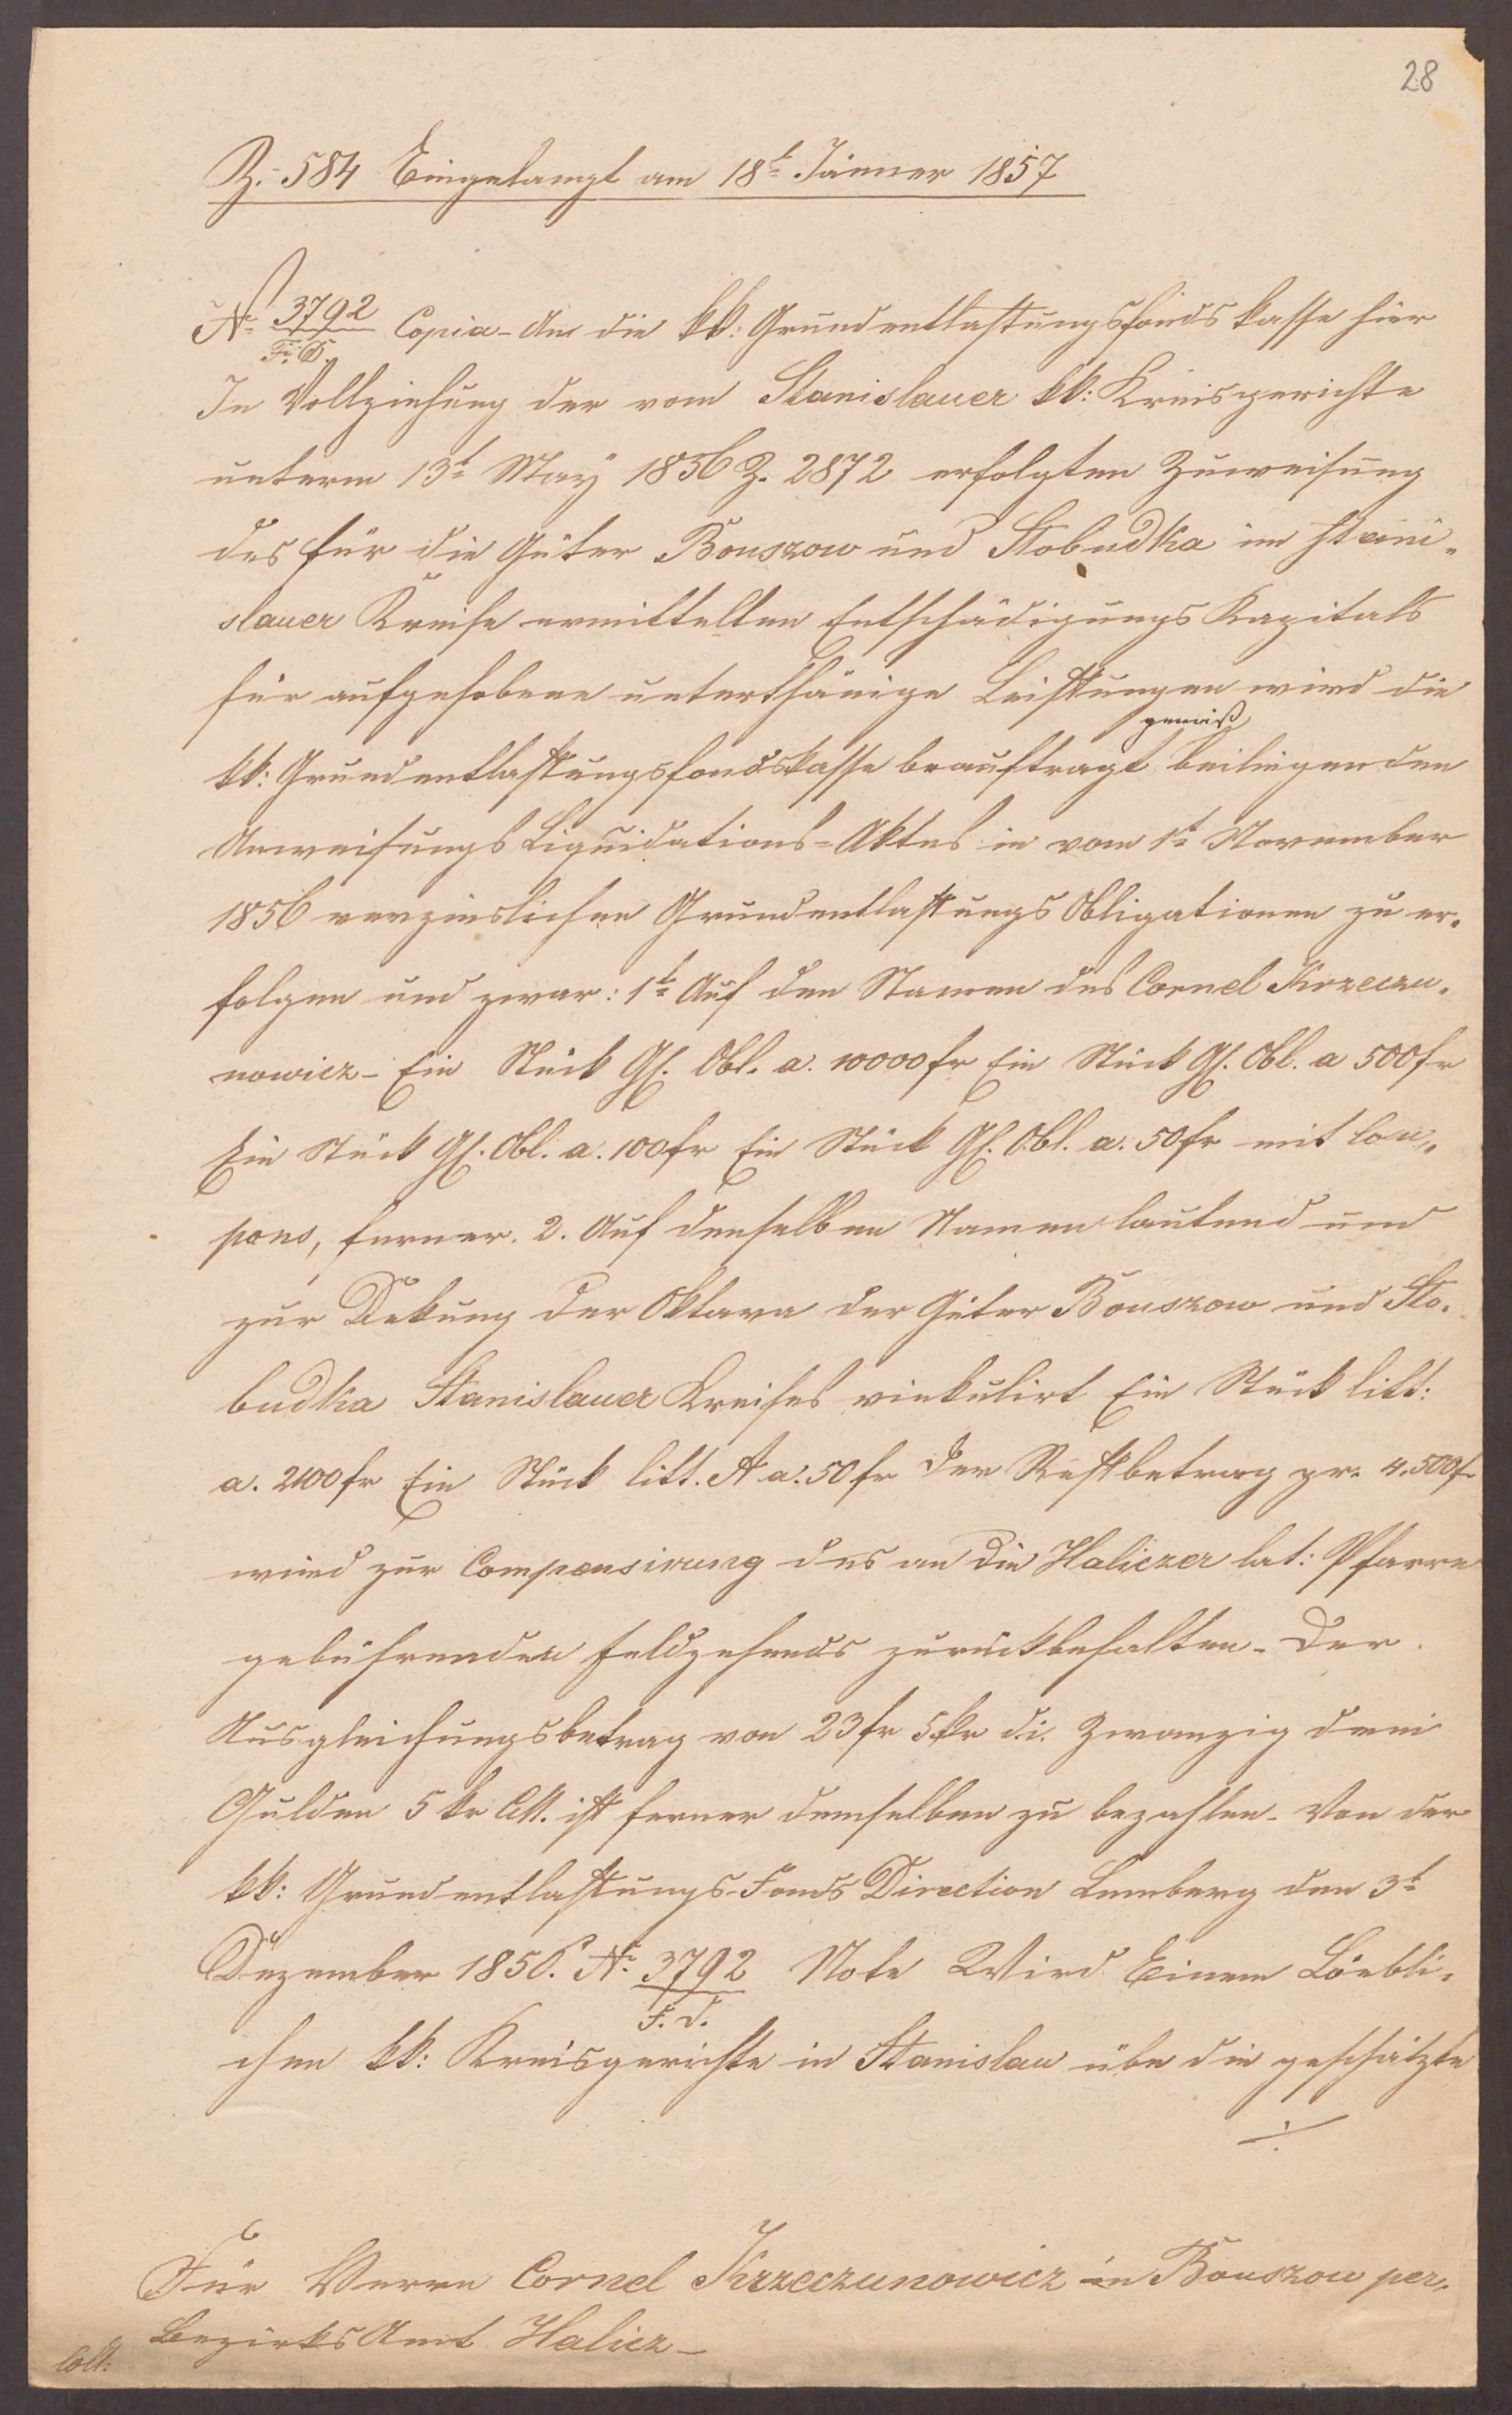 28
Z. 584 Eingelangt am 18t Jänner 1857
N. 3792/F. D. Copia - An die kk: Grundentlastungsfonds kasse hier
In Vollziehung der vom Stanislauer kk: Kreisgerichte
unterm 13t May 1856 Z. 2872 erfolgten Zuweisung
des für die Güter Bouszow und Slobudka im Stani-
slauer Kreise ermittelten Entschädigungs Kapitals
für aufgehobene unterthänige Leistungen wird die
kk: Grundentlastungsfondskasse beauftragt gemäß beiliegenden
Anweisungs Liquidations-Aktes in vom 1t November
1856 verzinslichen Grundentlastungs Obligationen zu er-
folgen und zwar: 1t Auf den Namen des Cornel Krzeczu-
nowicz - Ein Stück Gf. Obl. a. 10000 fr Ein Stück Gf. Obl. a 500 fr
Ein Stück Gf. Obl. a. 100 fr Ein Stück Gf. Obl. a. 50 fr mit Cou-
pons, ferner. 2. Auf denselben Namen lautend und
zur Dekung der Oktava der Güter Bouszow und Slo-
budka Stanislauer Kreises vinkulirt Ein Stück litt:
a. 2100 fr Ein Stück litt. A a. 50 fr Der Restbetrag pr. 4.500 fr
wird zur Compensirung des an die Haliczer lat: Pfarre
gebührenden Feldzehends zurückbehalten - Der
Ausgleichungsbetrag von 23 fr 5 kr d. i. Zwanzig drei
Gulden 5 kr CM. ist ferner demselben zu bezahlen - Von der
kk: Grundentlastungs-Fonds Direction Lemberg den 3t
Dezember 1856. N. 3792/F. D. Note Wird Einem Löbli-
chen kk: Kreisgerichte in Stanislau übe die geschätzte
./.
Für Herrn Cornel Krzeczunowicz in Bouszow per
Bezirks Amt Halicz -
Coll: